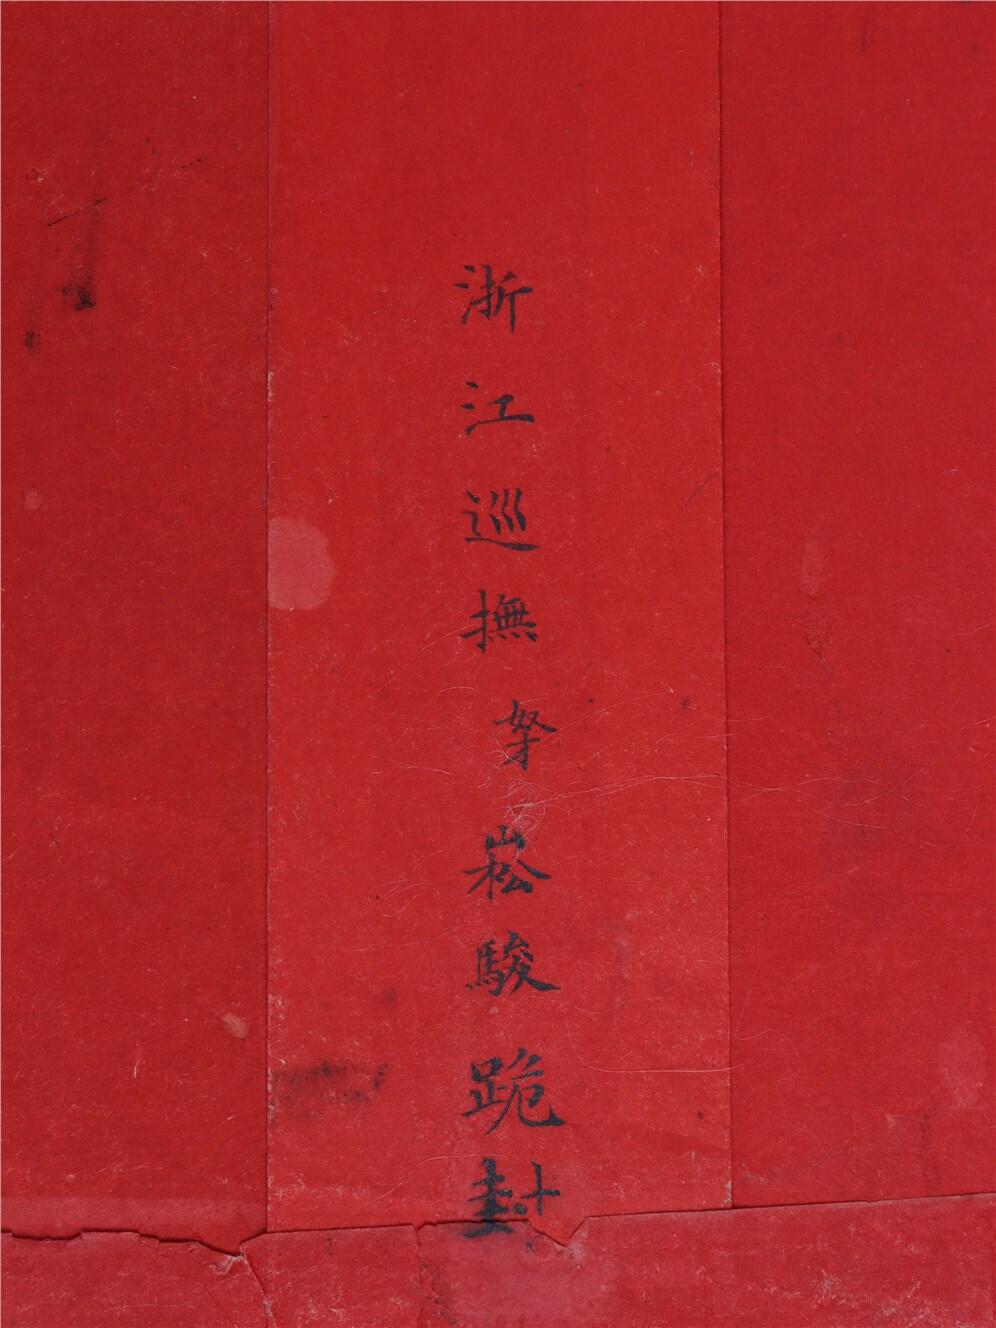 浙江巡撫奴才崧駿跪封